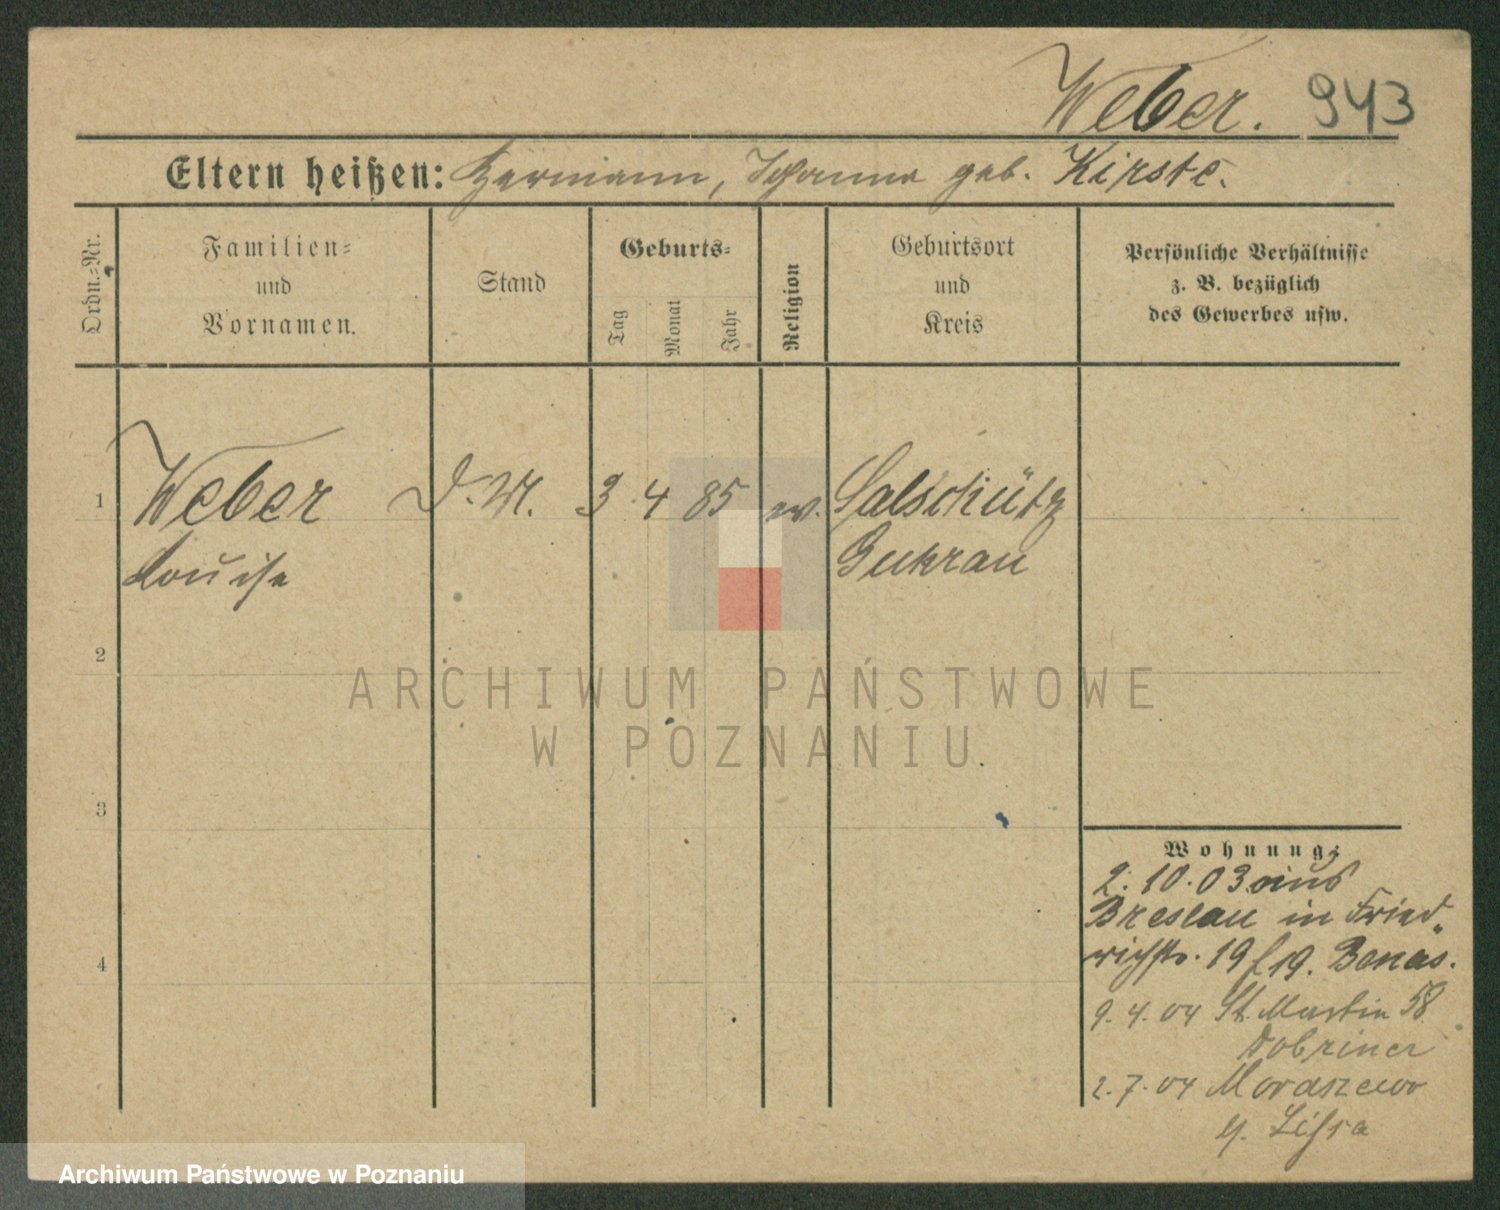 Weber. 943
Eltern heißen: Hermann, Johanna geb. Kirste.
Ordn.=Nr.
Familien=
und
Vornamen.
Stand
Geburts=
Tag
Monat
Jahr
Religion
Geburtsort
und
Kreis
Persönliche Verhältnisse
z. B. bezüglich
des Gewerbes usw.
1 Weber D.M. 3 4 85 ev. Salschütz
Louise Guhrau
2
ARCHIWUM PAŃSTWOWE
W POZNANIU
3
Wohnung:
2. 10. 03 aus
Breslau in Fried„
richstr. 19 f. 19. Benas.
4
9. 4. 04 St. Martin 58
Dobriner
2. 7. 04 Moraszewo
Lissa
Archiwum Państwowe w Poznaniu